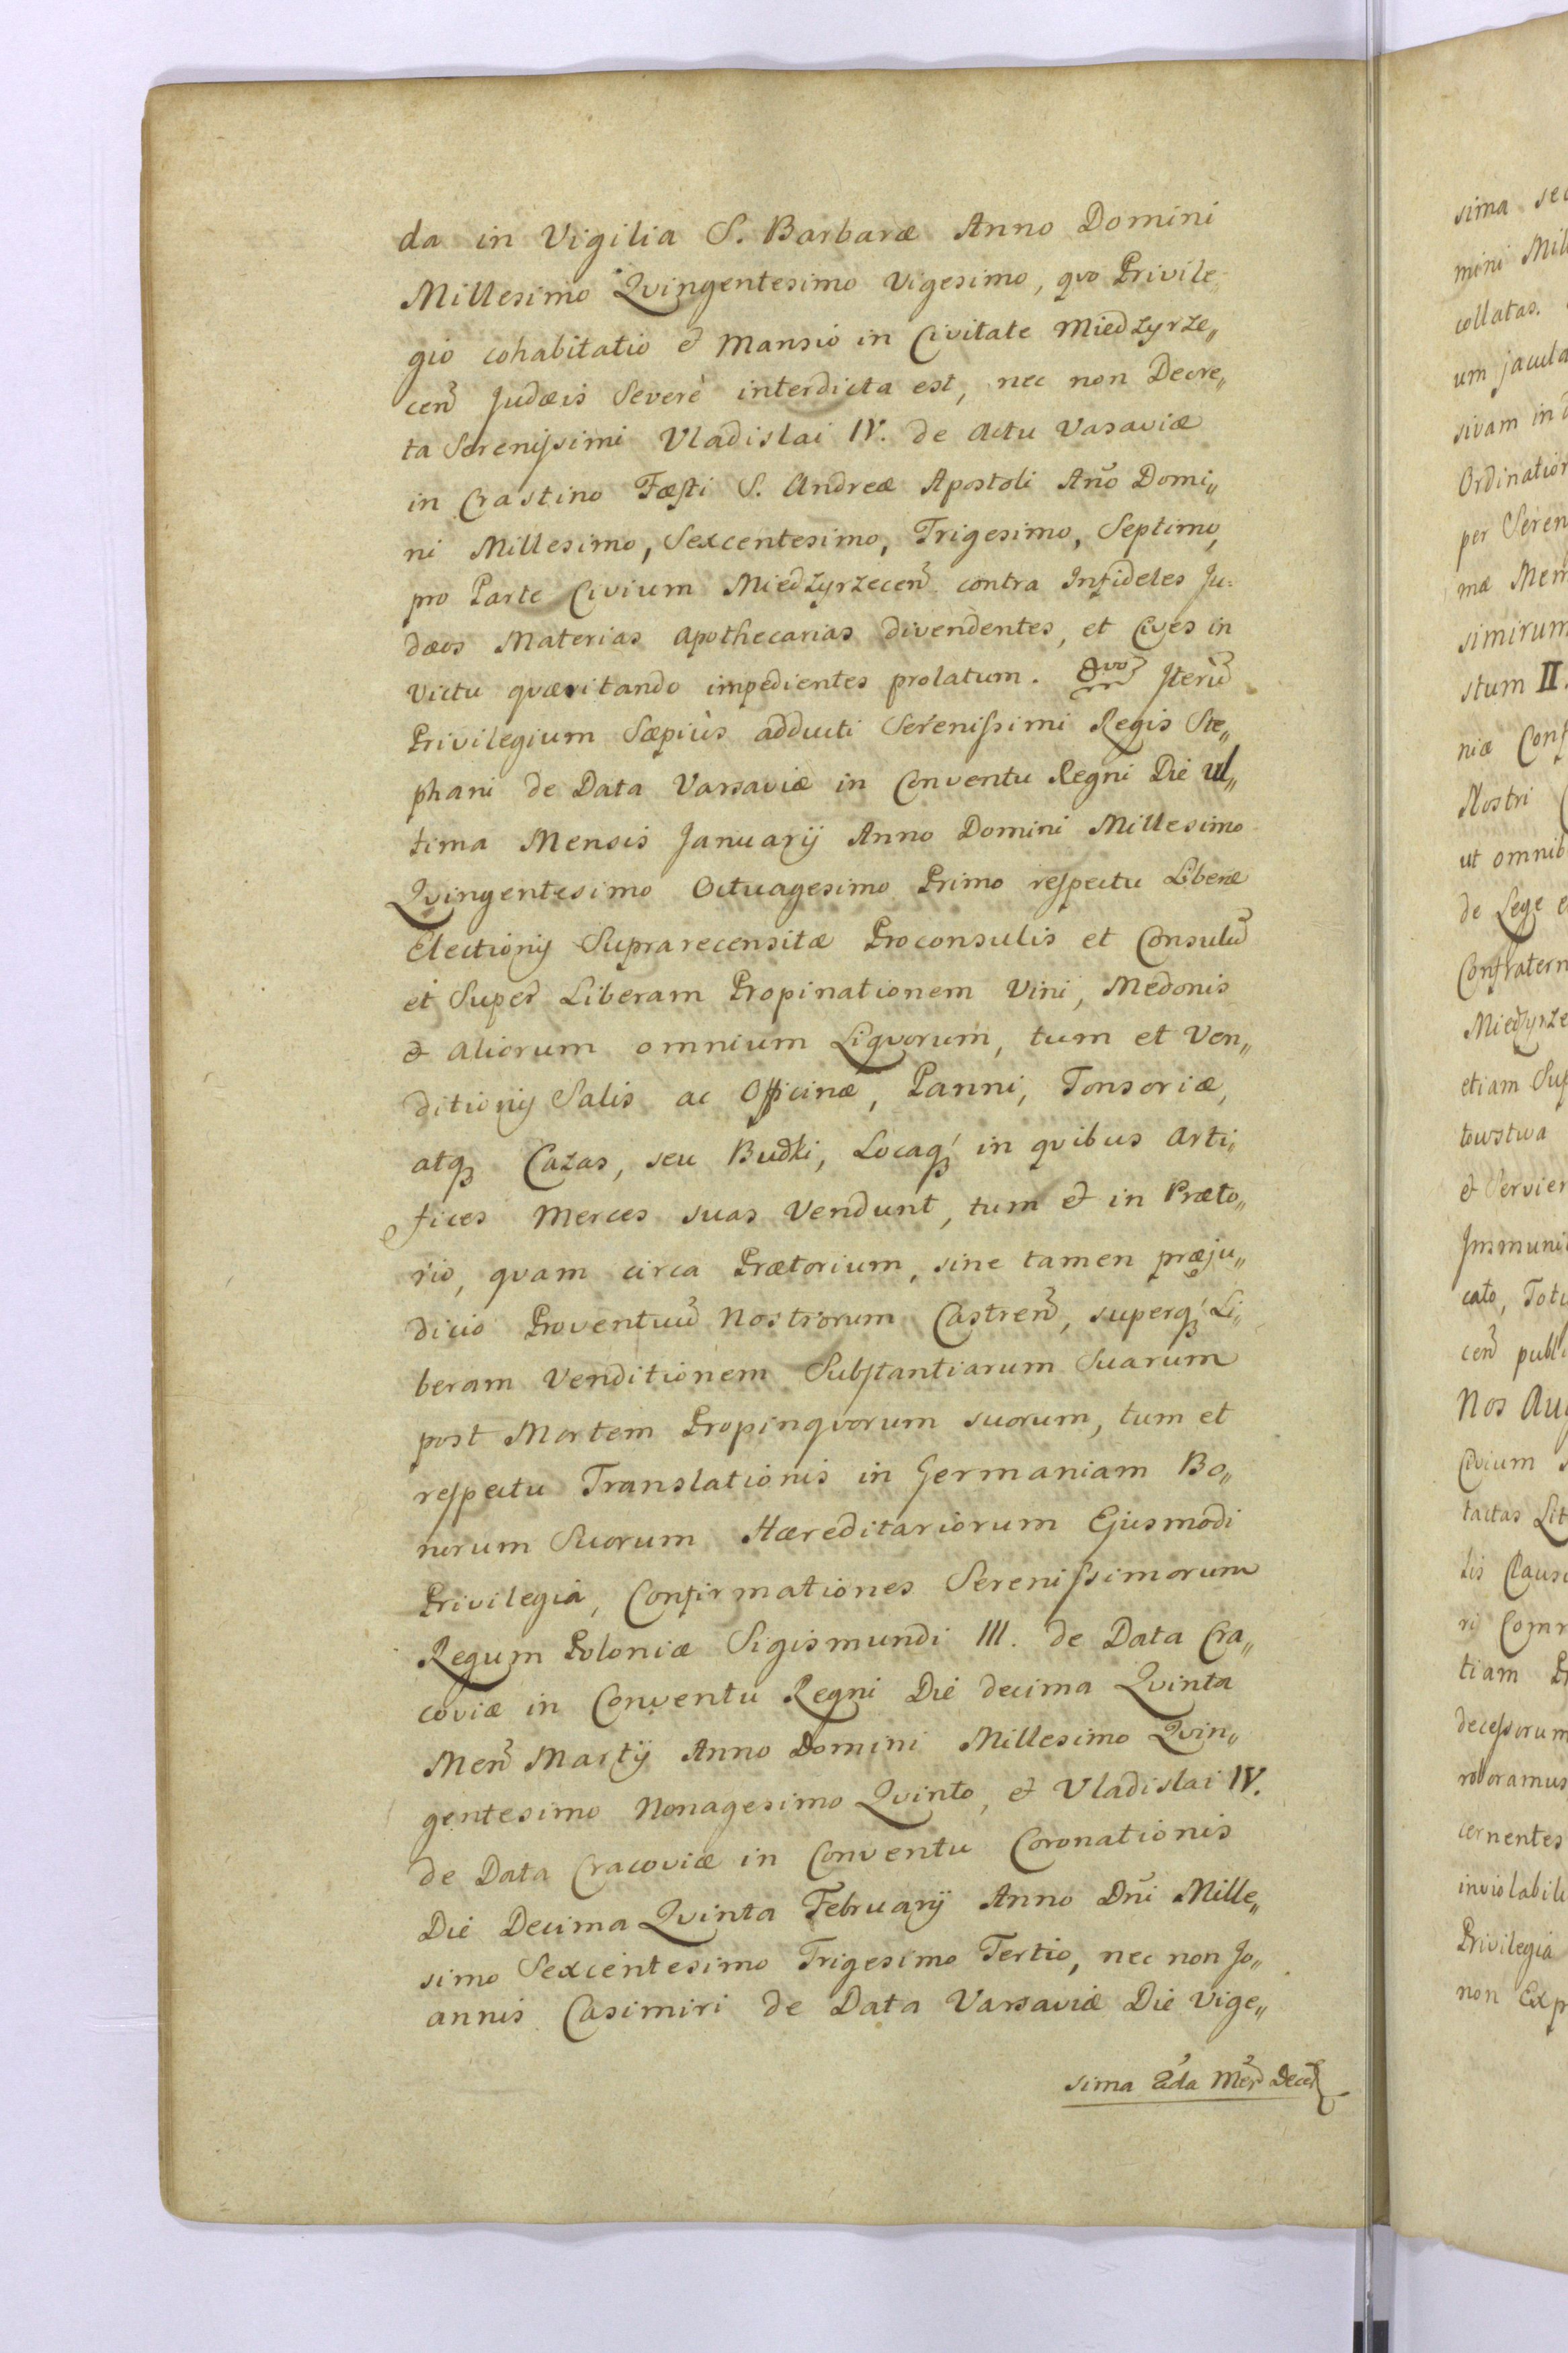 da in Vigilia S. Barbaræ Anno Domini
Millesimo Qvingentesimo Vigesimo, qvo Privile„
gio cohabitatio & Mansio in Civitate Miedzyrze„
cen̄ Judæis Severè interdicta est, nec non Decre„
ta Serenissimi Vladislai IV. de Actu Vasaviæ
in Crastino Fæsti S. Andreæ Apostoli Ano̅ Domi„
ni Millesimo, Sexcentesimo, Trigesimo, Septimo,
pro Parte Civium Miedzyrzecen̄ contra Infideles Ju„
dæos Materias Apothecarias divendentes, et Cives in
victu qværitando impedientes prolatum. 8vo Iterū
Privilegium Sæpiùs adducti Serenissimi Regis Ste„
phani de Data Varsaviæ in Conventu Regni Die ul„
tima Mensis Januarij Anno Domini Millesimo
Qvingentesimo Octuagesimo Primo respectu Liberæ
Electionis Suprarecensitæ Proconsulis et Consulū
et Super Liberam Propinationem Vini, Medonis
& Aliorum omnium Liqvorum, tum et Ven„
ditionis Salis ac Officinæ, Panni, Tonsoriæ,
atq Cazas, seu Budki, Locaq́ in qvibus Arti„
fices Merces suas Vendunt, tum & in Præto„
rio, qvam circa Prætorium, sine tamen præju„
dicio Proventuū Nostrorum Castren̄, superq́ Li„
beram Venditionem Substantiarum Suarum
post Mortem Propinqvorum suorum, tum et
respectu Translationis in Germaniam Bo„
norum Suorum Hæreditariorum Ejusmodi
Privilegia, Confirmationes Serenissimorum
Regum Poloniæ Sigismundi III. de Data Cra„
coviæ in Conventu Regni Die decima Qvinta
Men̄ Martij Anno Domini Millesimo Qvin„
gentesimo Nonagesimo Qvinto, & Vladislai IV.
de Data Cracoviæ in Conventu Coronationis
Die Decima Qvinta Februarij Anno Dn̄i Mille„
simo Sexcentesimo Trigesimo Tertio, nec non Jo„
annis Casimiri de Data Varsaviæ Die Vige„
sima 2da Men̄ Decem̄
sima
mini
collatas.
um
sivam in
per
mæ
simirum
stum II.
niæ
Nostri
ut
de Lege
etiam
towstwa
&
cato,
cen̄
Nos
Civium
tactas
lis
ri
tiam
roboramus
cernentes
Privilegia
non